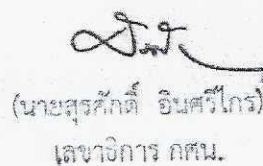 (นายสุรศักดิ์ อินศรีไกร)
เลขาธิการ กศน.